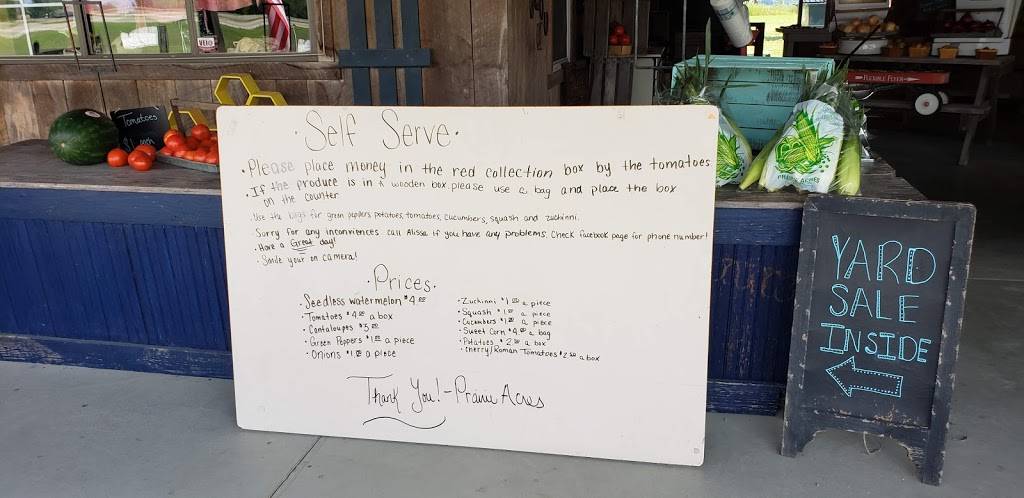 Self Serve.
· Please place money in the red collection box by the tomatoes
· If the produce is in a wooden box please use a bag and place the box
on the counter
· Use the bags for green peppers, potatoes, tomatoes, cucumbers, squash and zuchinni.
· Sorry for any inconviences call Alissa if you have any problems. Check facebook page for phone number!
· Have a Great day!
· Smile your on camera!
· Prices.
· Seedless watermelon $4.00
· Tomatoes $4.00 a box
· Cantaloupes $3.00
· Green Peppers $1.00 a piece
· Onions $1.00 a piece
· Zuchinni $1.00 a piece
· Squash $1.00 a piece
· Cucumbers $1.00 a piece
· Sweet Corn $4.00 a bag
· Potatoes $2.00 a box
· Cherry/Roman Tomatoes $2.50 a box
Thank You! - Prairie Acres
Tomatoes
YARD
SALE
INSIDE
FLEXIBLE FLYER